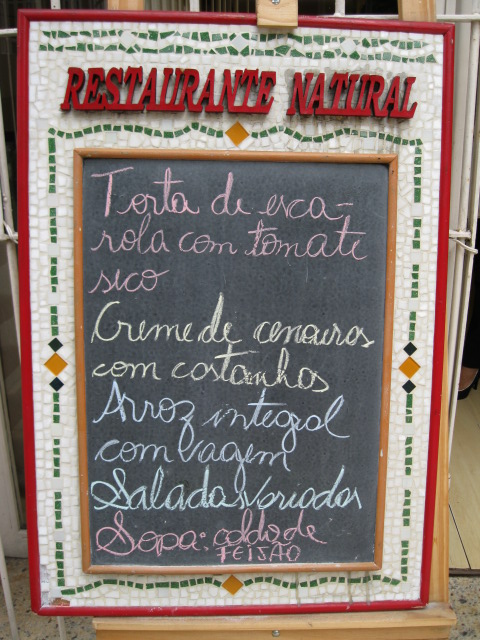 RESTAURANTE NATURAL
Torta de esca-
rola com tomate
sico
Creme de cenouras
com castanhas
Arroz integral
com vagem
Saladas Variadas
Sopa: caldo de
FEIJÃO